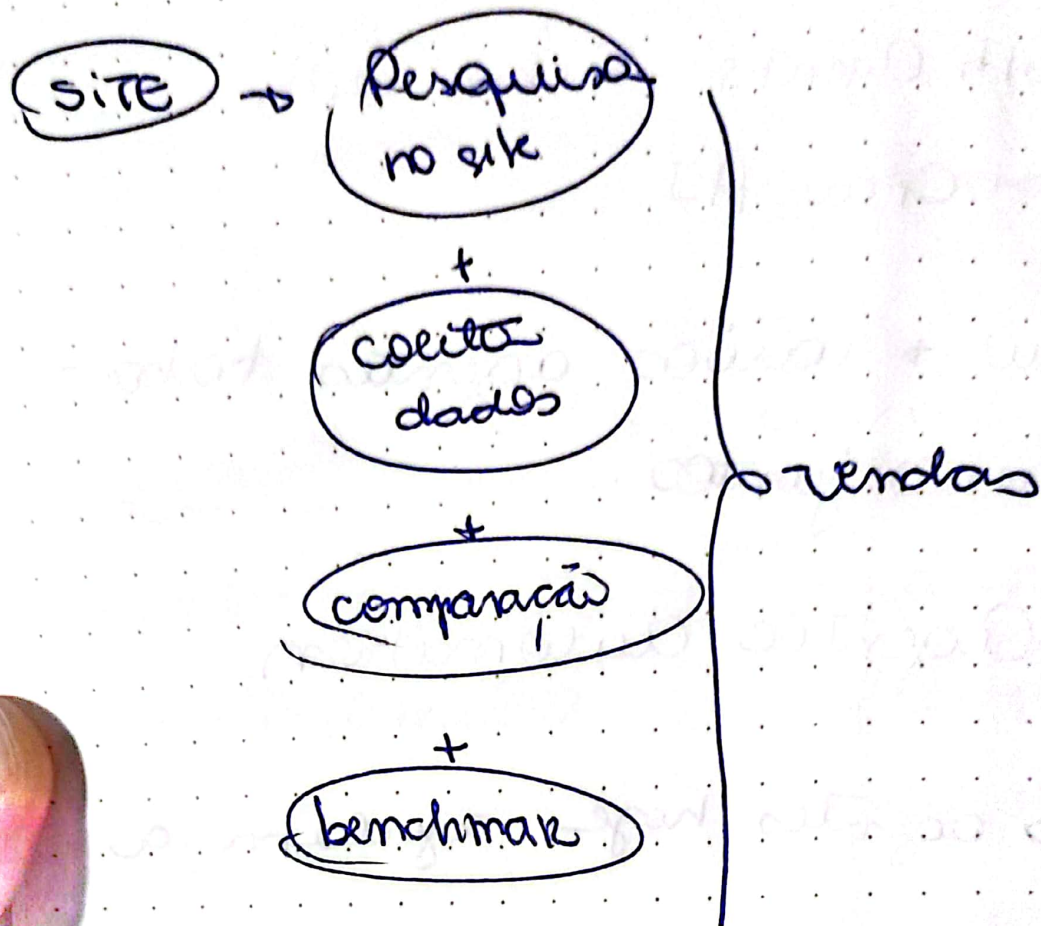 SiTE → Pesquisa
no site
+
coleta
dados
+
comparação
+
benchmar
vendas